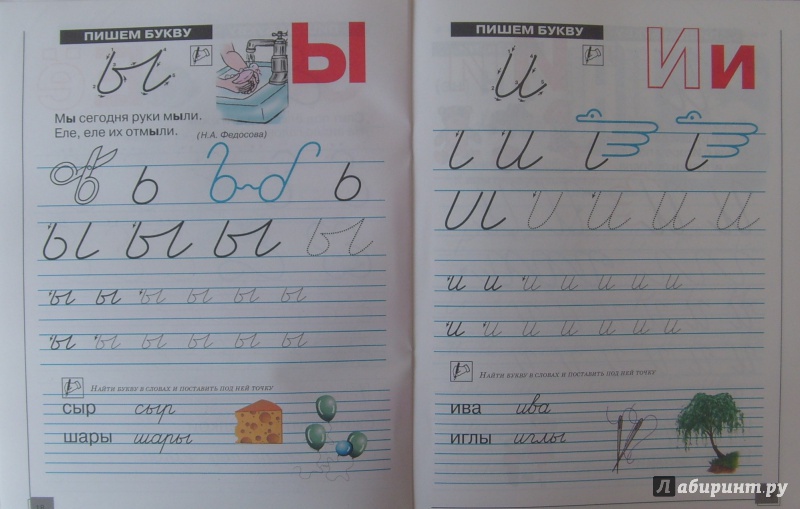 ПИШЕМ БУКВУ
ы Ы
Мы сегодня руки мыли.
Еле, еле их отмыли. (Н.А. Федосова)
ь ь
ы ы ы ы
ы ы ы ы ы ы
ы ы ы ы ы ы
НАЙТИ БУКВУ В СЛОВАХ И ПОСТАВИТЬ ПОД НЕЙ ТОЧКУ
сыр сыр
шары шары
ПИШЕМ БУКВУ
и И и
и
и и и и и
и и и и и и и
и и и и и и и
НАЙТИ БУКВУ В СЛОВАХ И ПОСТАВИТЬ ПОД НЕЙ ТОЧКУ
ива ива
иглы иглы
Лабиринт.ру